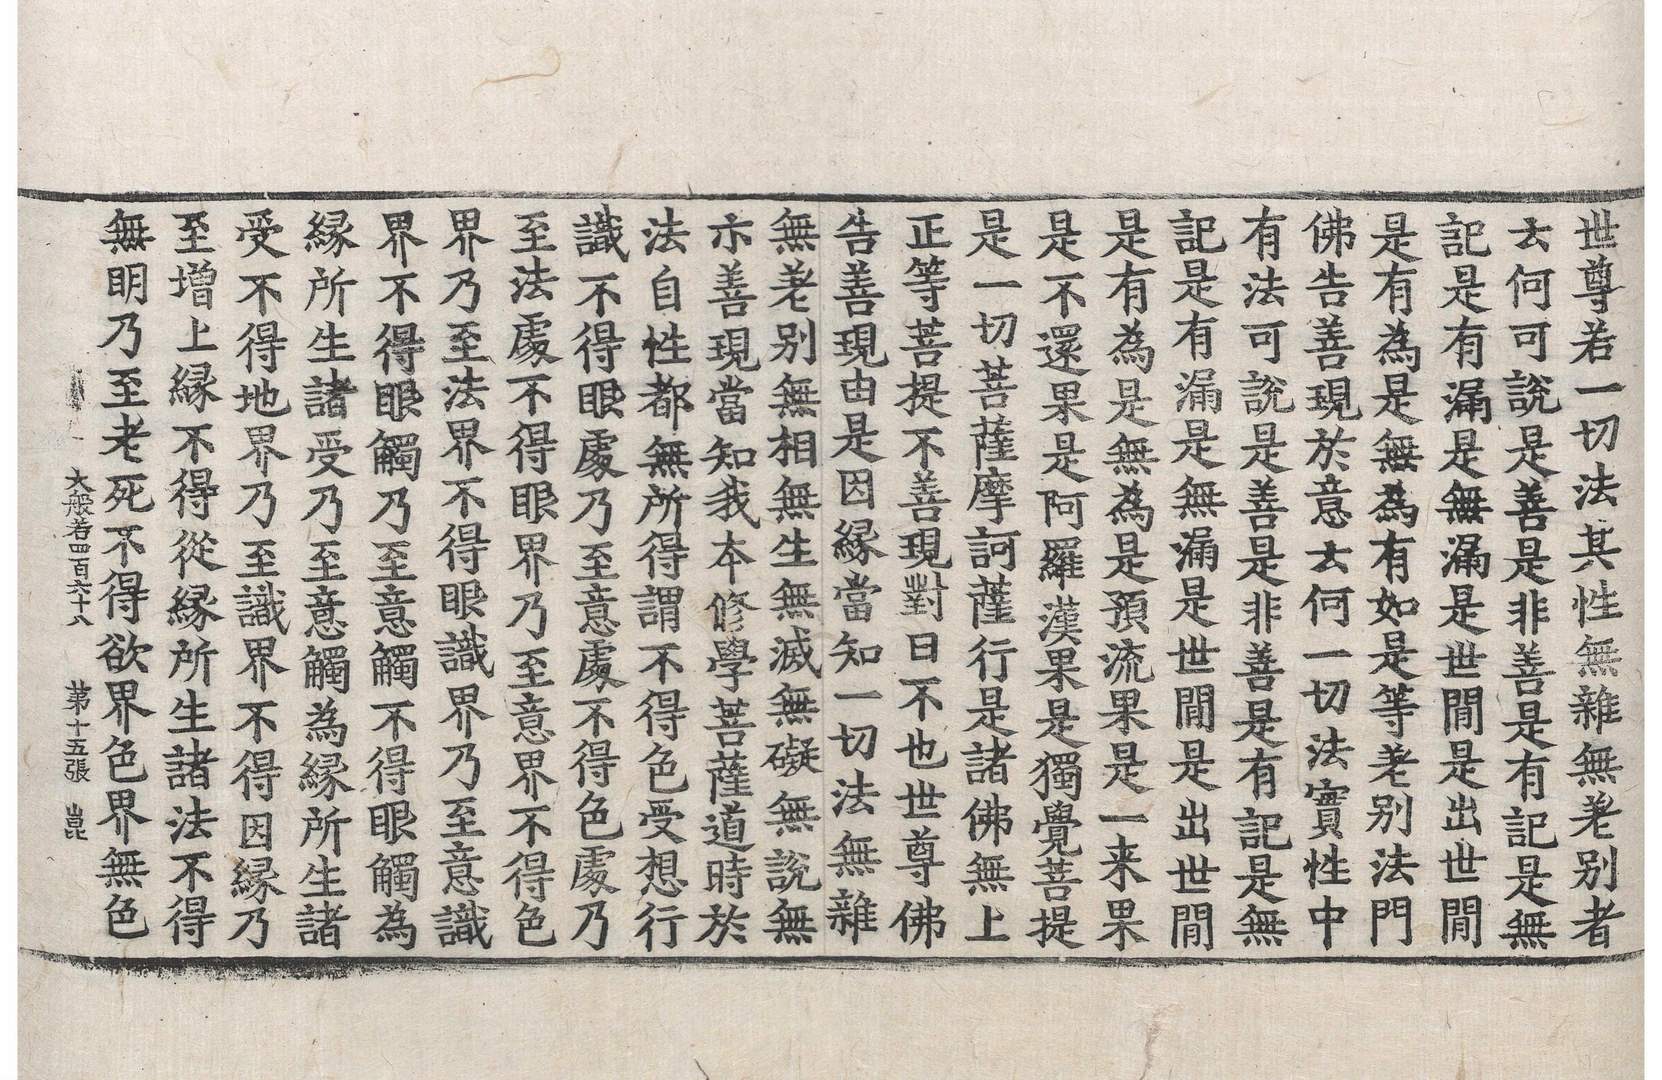 世尊若一切法其性無雜無差別者
云何可說是善是非善是有記是無
記是有漏是無漏是世間是出世間
是有為是無為有如是等差別法門
佛告善現於意云何一切法實性中
有法可說是善是非善是有記是無
記是有漏是無漏是世間是出世間
是有為是無為是預流果是一来果
是不還果是阿羅漢果是獨覺菩提
是一切菩薩摩訶薩行是諸佛無上
正等菩提不善現對曰不也世尊佛
告善現由是因緣當知一切法無雜
無差別無相無生無滅無礙無說無
示善現當知我本修學菩薩道時於
法自性都無所得謂不得色受想行
識不得眼處乃至意處不得色處乃
至法處不得眼界乃至意界不得色
界乃至法界不得眼識界乃至意識
界不得眼觸乃至意觸不得眼觸為
緣所生諸受乃至意觸為緣所生諸
受不得地界乃至識界不得因緣乃
至增上緣不得從緣所生諸法不得
無明乃至老死不得欲界色界無色
大般若四百六十八 第十五張 崑